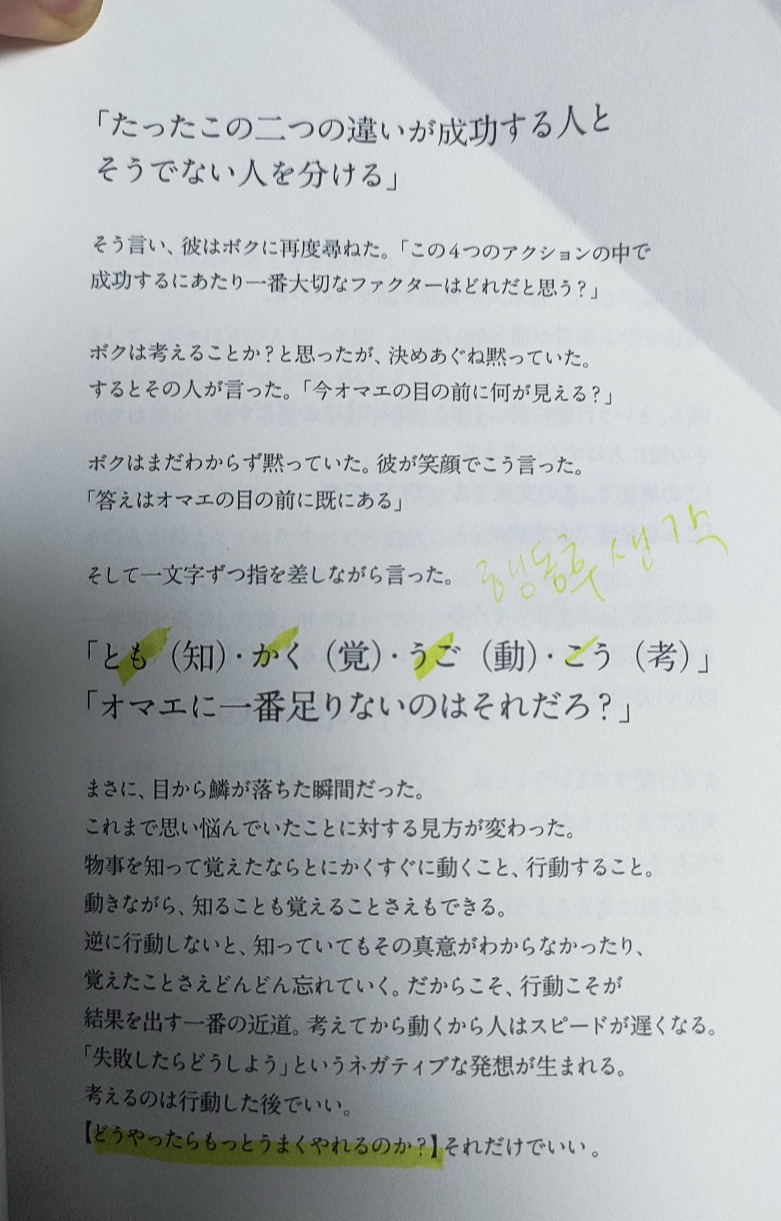 「たったこの二つの違いが成功する人と
そうでない人を分ける」
そう言い、彼はボクに再度尋ねた。「この4つのアクションの中で
成功するにあたり一番大切なファクターはどれだと思う?」
ボクは考えることか?と思ったが、決めあぐね黙っていた。
するとその人が言った。「今オマエの目の前に何が見える?」
ボクはまだわからず黙っていた。彼が笑顔でこう言った。
「答えはオマエの目の前に既にある」
そして一文字ずつ指を差しながら言った。
행동후 생각
「とも（知）・かく（覚）・うご（動）・こう（考）」
「オマエに一番足りないのはそれだろ?」
まさに、目から鱗が落ちた瞬間だった。
これまで思い悩んでいたことに対する見方が変わった。
物事を知って覚えたならとにかくすぐに動くこと、行動すること。
動きながら、知ることも覚えることさえもできる。
逆に行動しないと、知っていてもその真意がわからなかったり、
覚えたことさえどんどん忘れていく。だからこそ、行動こそが
結果を出す一番の近道。考えてから動くから人はスピードが遅くなる。
「失敗したらどうしよう」というネガティブな発想が生まれる。
考えるのは行動した後でいい。
【どうやったらもっとうまくやれるのか?】それだけでいい。